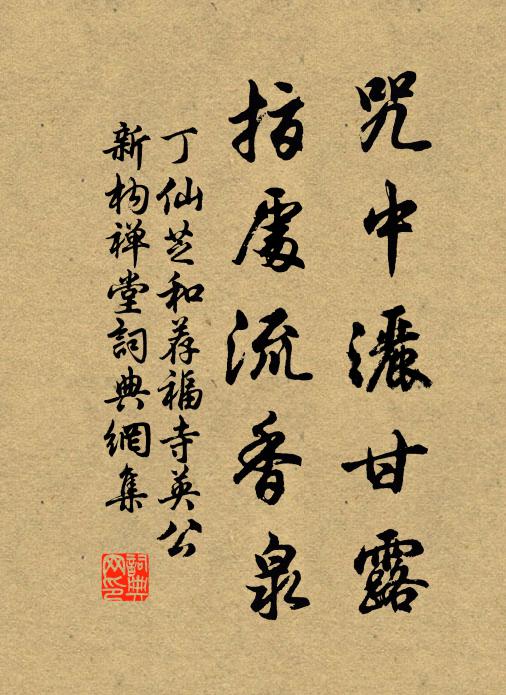 咒中灑甘露
指處流香泉
丁仙芝和荐福寺英公
新构禅堂詞典網集
詞典
网印